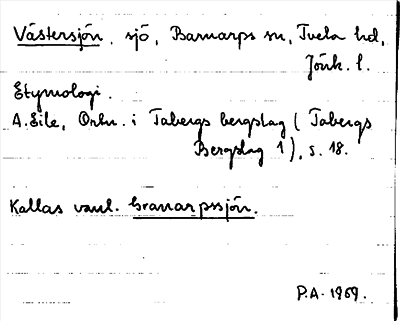 Västersjön, sjö, Barnarps sn, Tveta hd,
Jönk. l.
Etymologi.
A. Eile, Ortn. i Tabergs bergslag (Tabergs
Bergslag 1), s. 18.
Kallas vanl. Granarpssjön.
P.A. 1969.